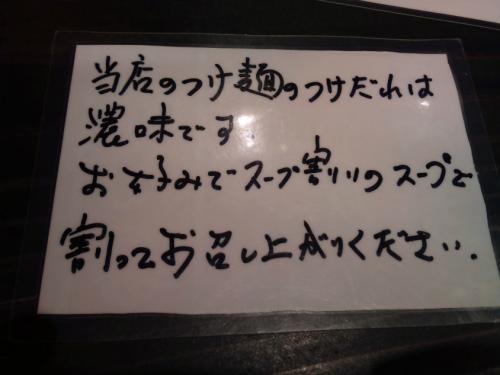 当店のつけ麺のつけだれは
濃味です。
お好みでスープ割りのスープで
割ってお召し上がりください.